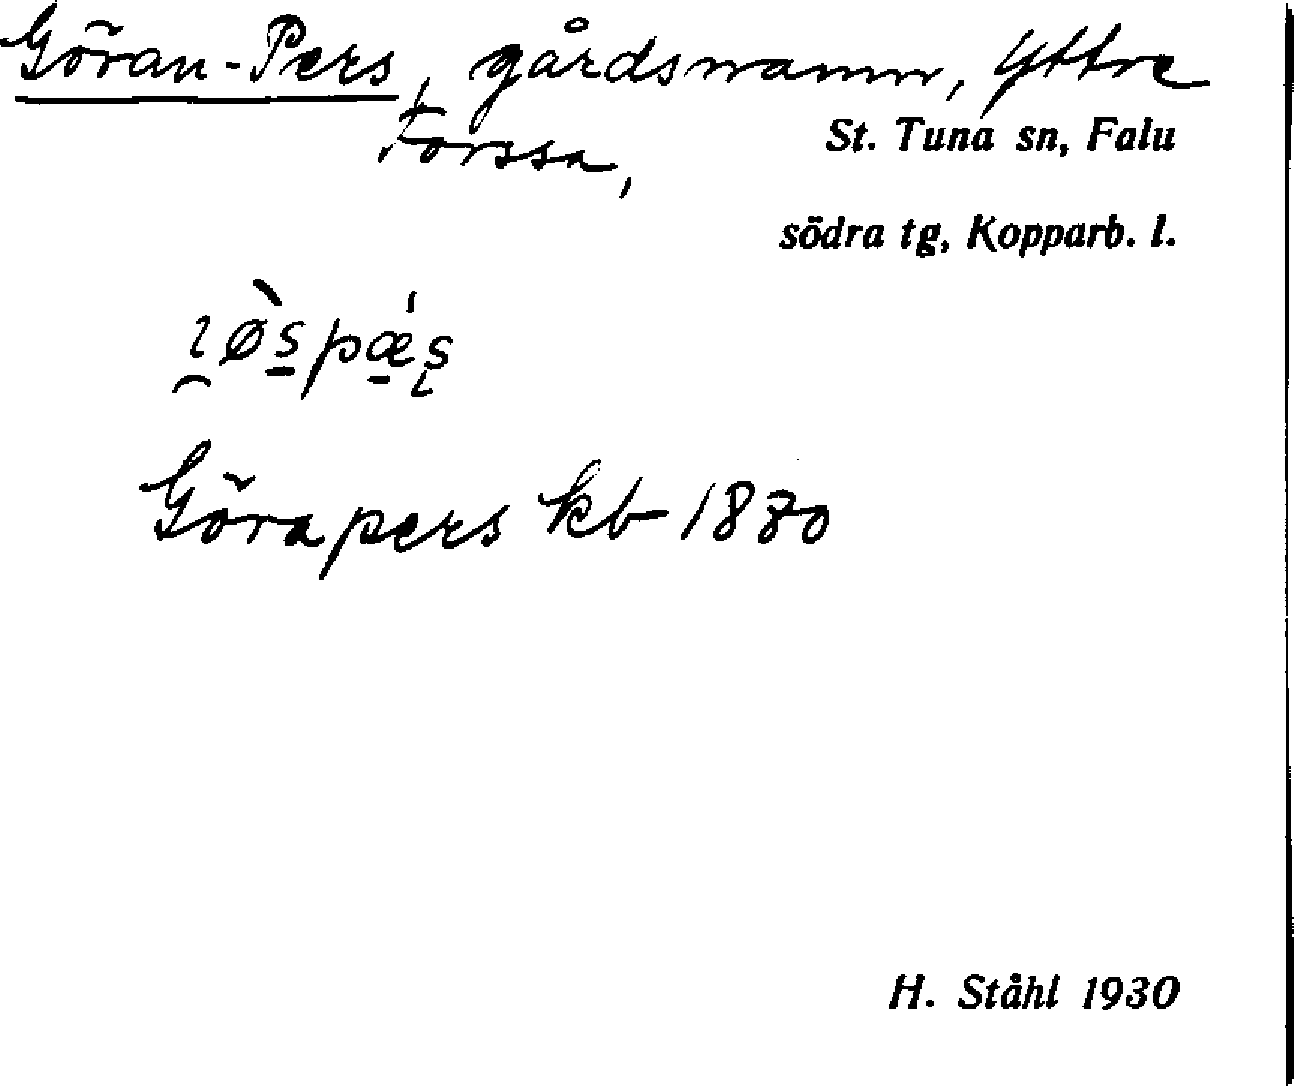 Göran-Pers, gårdsnamn, Yttre
Forssa,
St. Tuna sn, Falu
södra tg, Kopparb. l.
Görapers kb 1880
H. Ståhl 1930